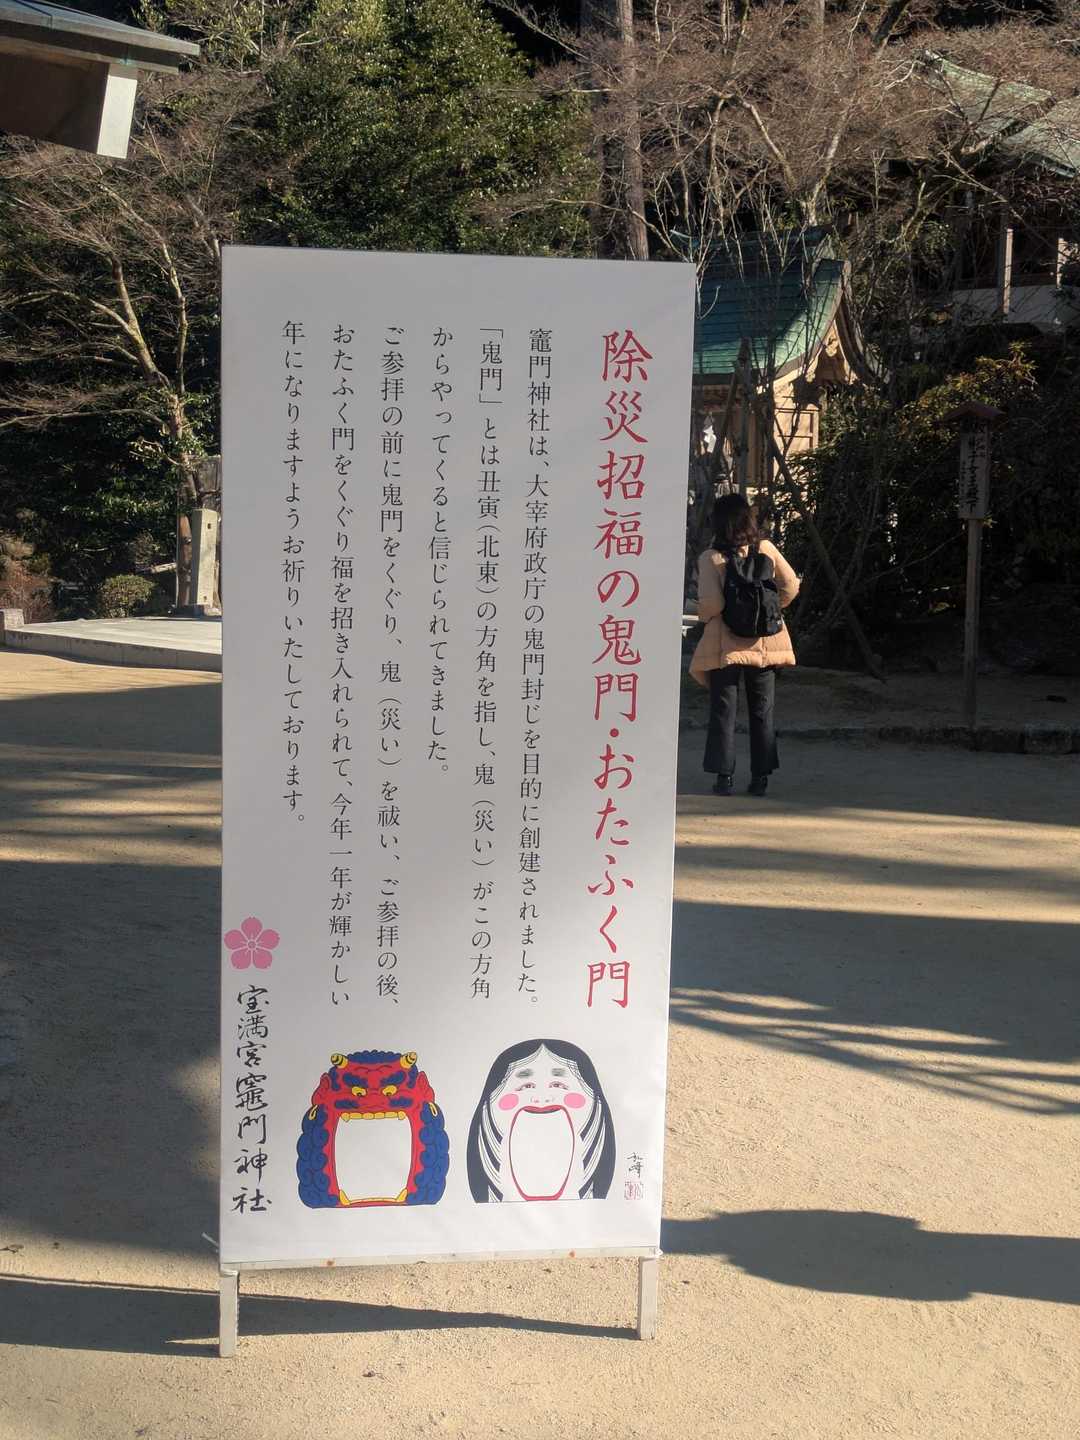 除災招福の鬼門・おたふく門
竈門神社は、大宰府政庁の鬼門封じを目的に創建されました。
「鬼門」とは丑寅（北東）の方角を指し、鬼（災い）がこの方角
からやってくると信じられてきました。
ご参拝の前に鬼門をくぐり、鬼（災い）を祓い、ご参拝の後、
おたふく門をくぐり福を招き入れられて、今年一年が輝かしい
年になりますようお祈りいたしております。
宝満宮竈門神社